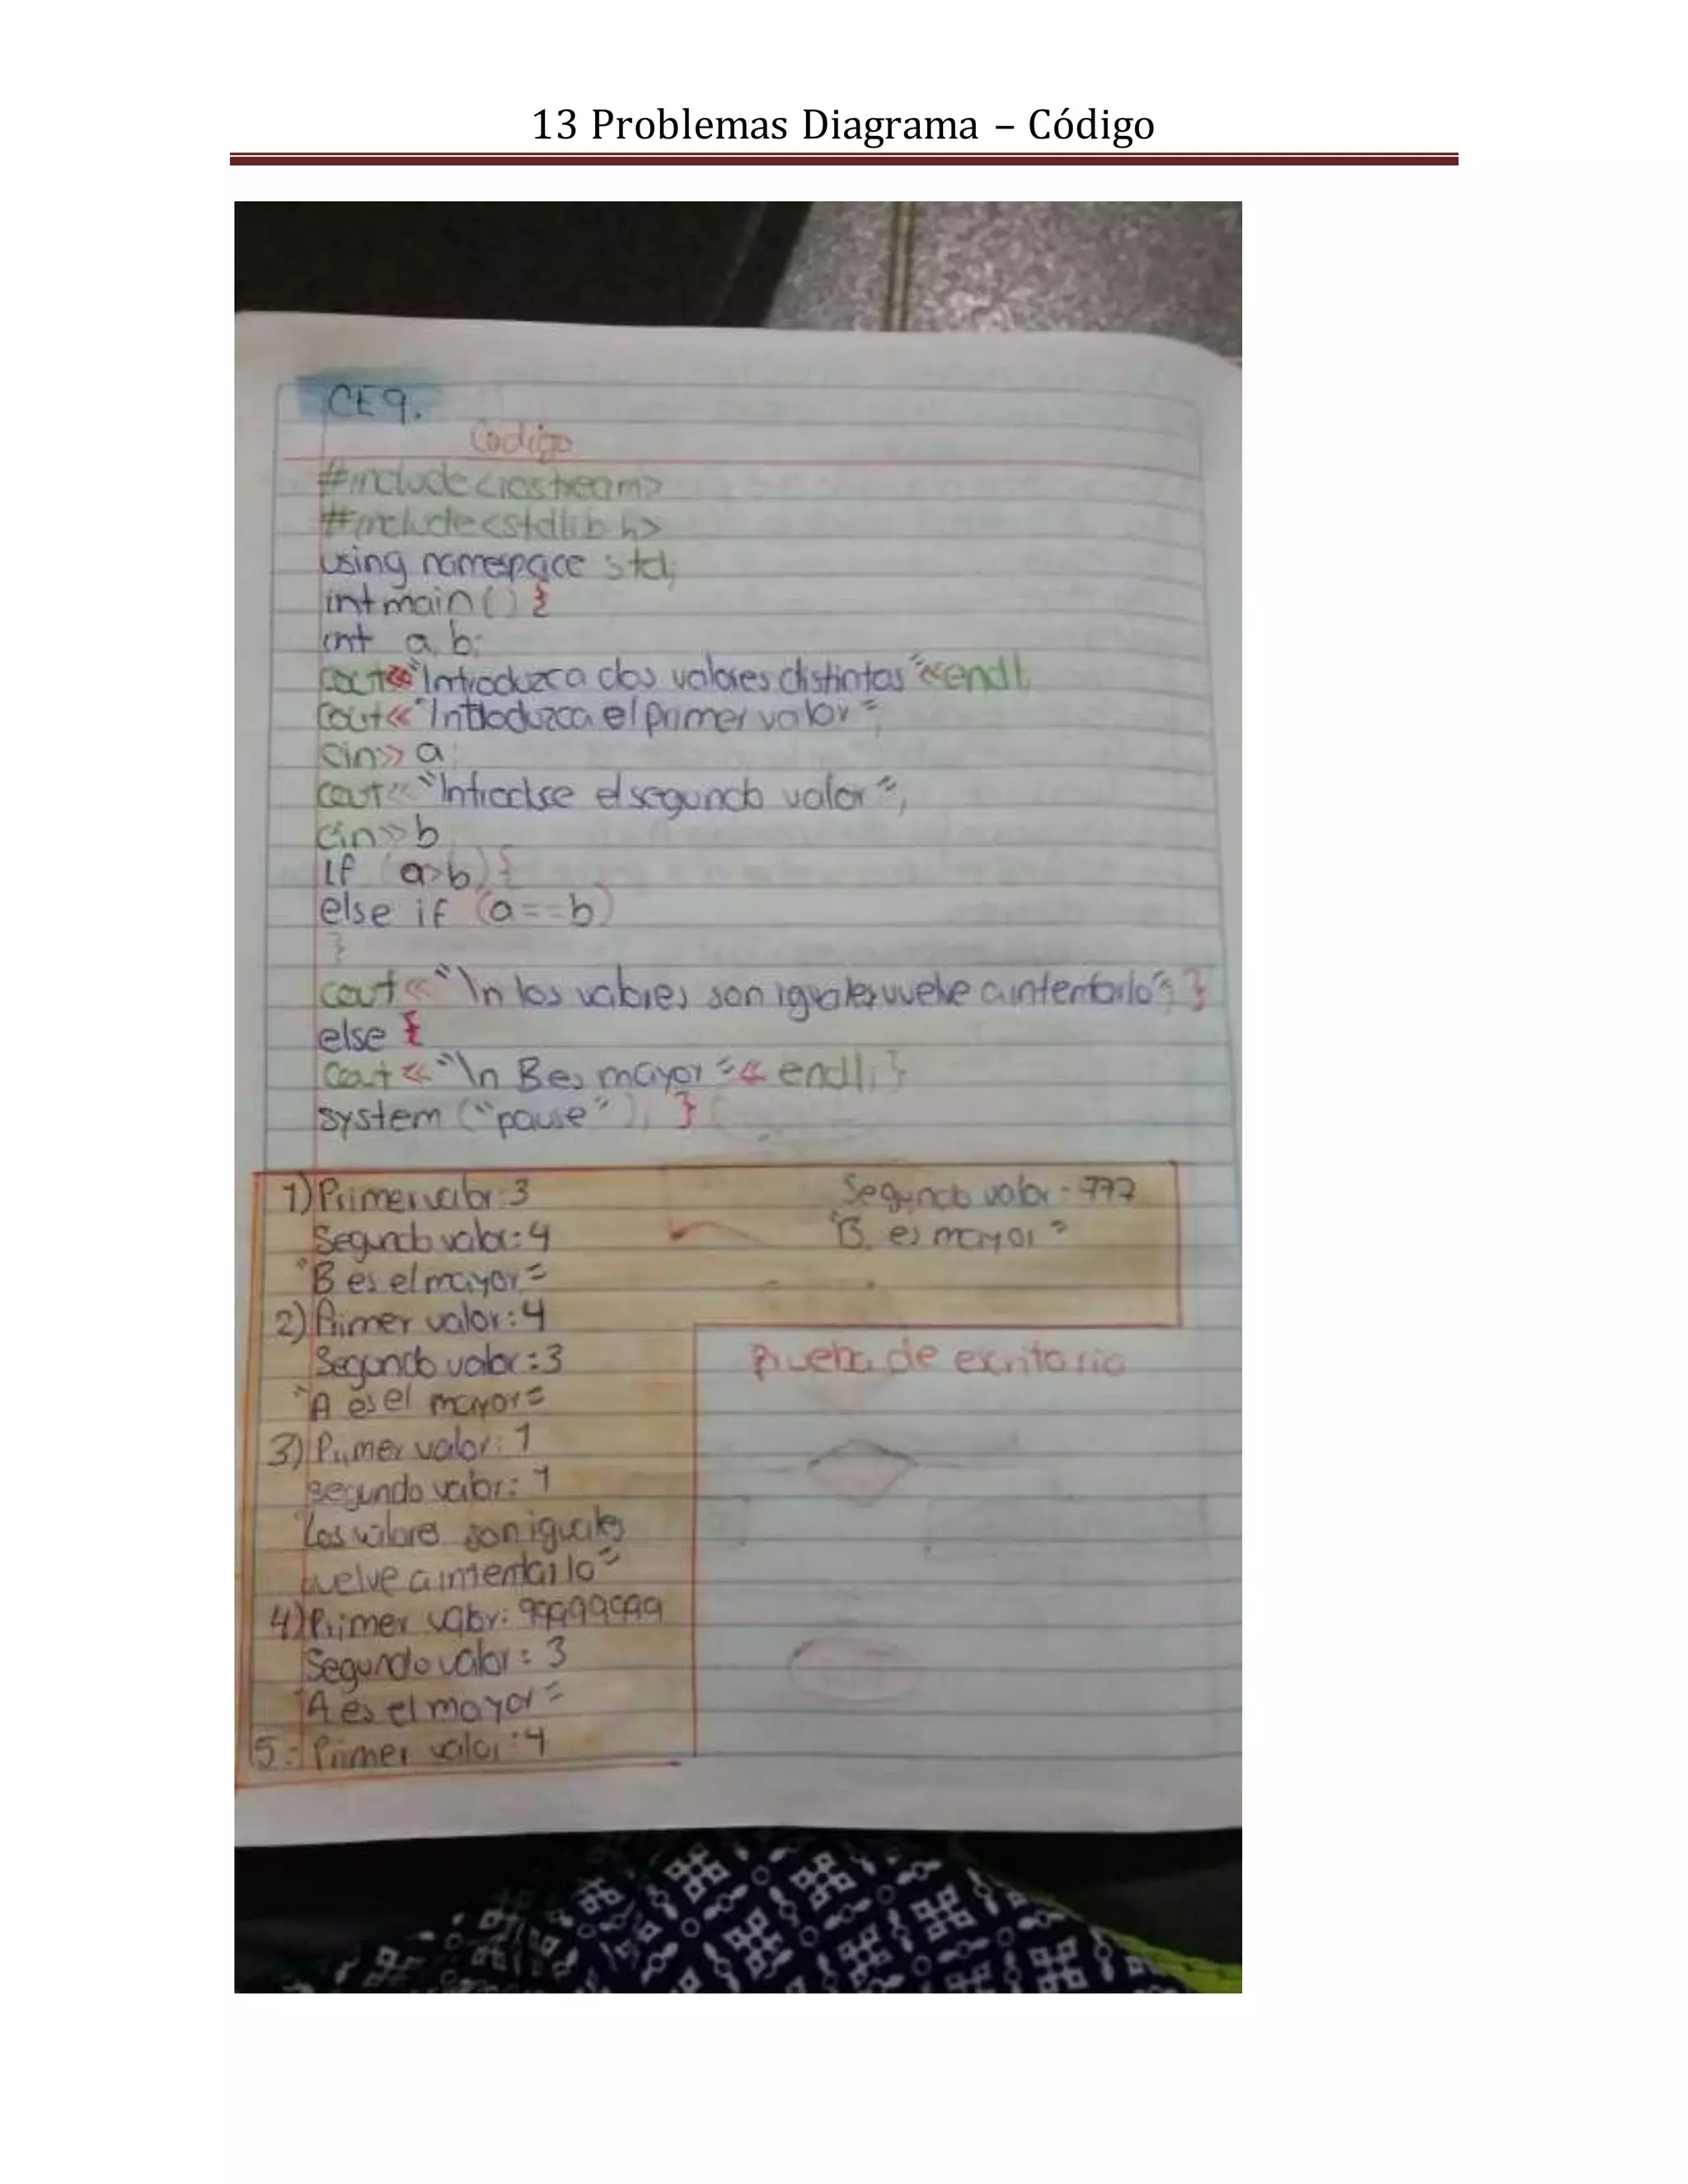 13 Problemas Diagrama – Código
CE9.
Codigo
#include<iostream>
#include<stdlib.h>
using namespace std;
int main() {
int a, b;
cout<<"Introduzca dos valores distintos"<<endl;
cout<<"Introduzca el primer valor";
cin>> a;
cout<<"Introduse el segundo valor";
cin>>b
if (a>b){
else if (a==b)
}
cout<<"\n los valores son iguales vuelve a intentarlo"; }
else {
cout<<"\n B es mayor"<< endl; }
system ("pause"); }
1) Primer valor: 3
Segundo valor: 4
"B es el mayor"
2) Primer valor: 4
Segundo valor: 3
"A es el mayor"
3) Primer valor: 1
segundo valor: 1
"Los valores son iguales
vuelve a intentarlo"
4) Primer valor: 99999999
Segundo valor: 3
"A es el mayor"
5.- Primer valor: 4
Segundo valor: 777
"B. es mayor"
Prueba de escritorio